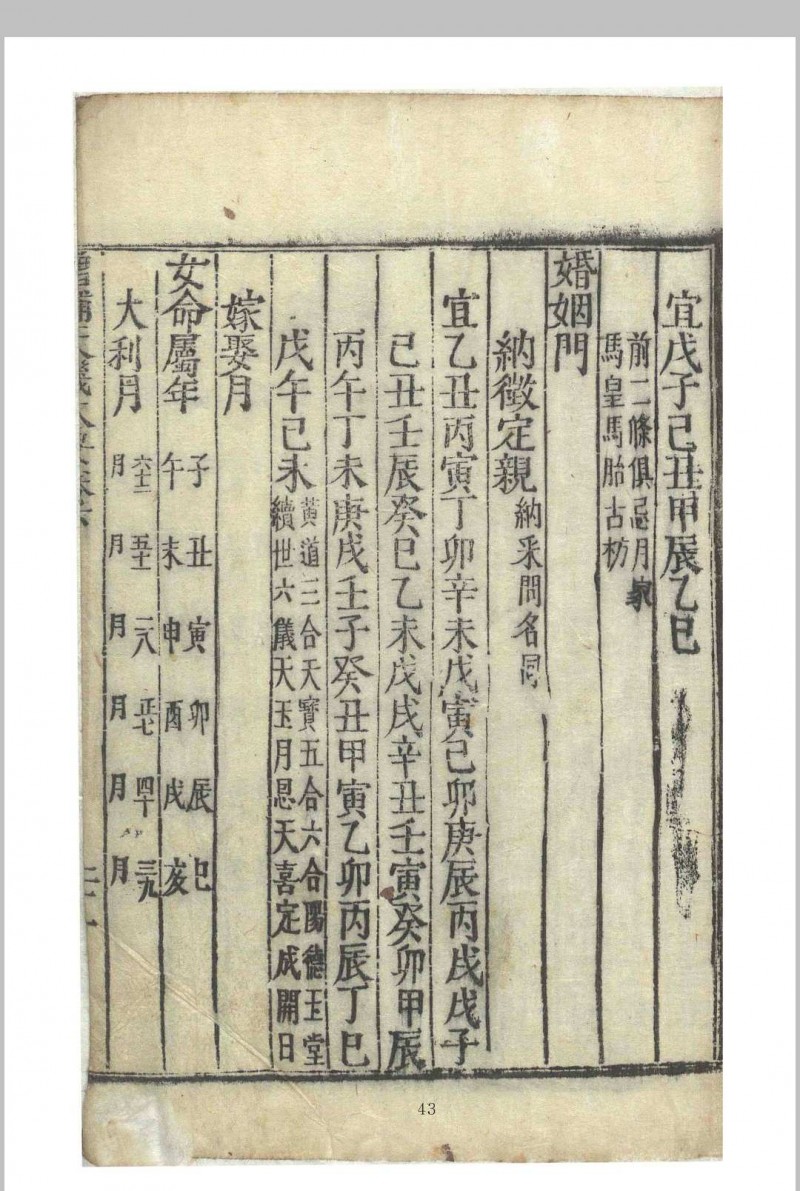 宜戊子己丑甲辰乙巳
前二條俱忌月家
馬皇馬胎古枋
婚姻門
納徵定親納采問名同
宜乙丑丙寅丁卯辛未戊寅己卯庚辰丙戌戊子
己丑壬辰癸巳乙未戊戌辛丑壬寅癸卯甲辰
丙午丁未庚戌壬子癸丑甲寅乙卯丙辰丁巳
戊午己未
黃道三合天寶五合六合陽德玉堂
續世六儀天玉月恩天喜定成開日
嫁娶月
女命屬年 子午 丑未 寅申 卯酉 辰戌 巳亥
大利月 六十二月 五十一月 二八月 正七月 四十月 三九月
二十一
43